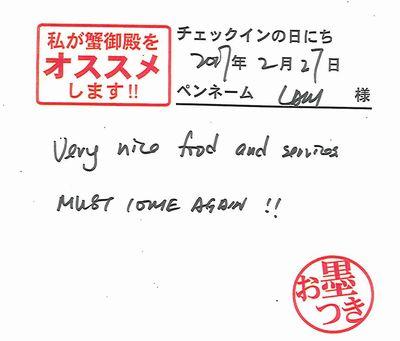 私が蟹御殿を
オススメ
します!!
チェックインの日にち
2017年2月27日
ペンネーム 様
Very nice food and services
MUST COME AGAIN !!
お墨
つき